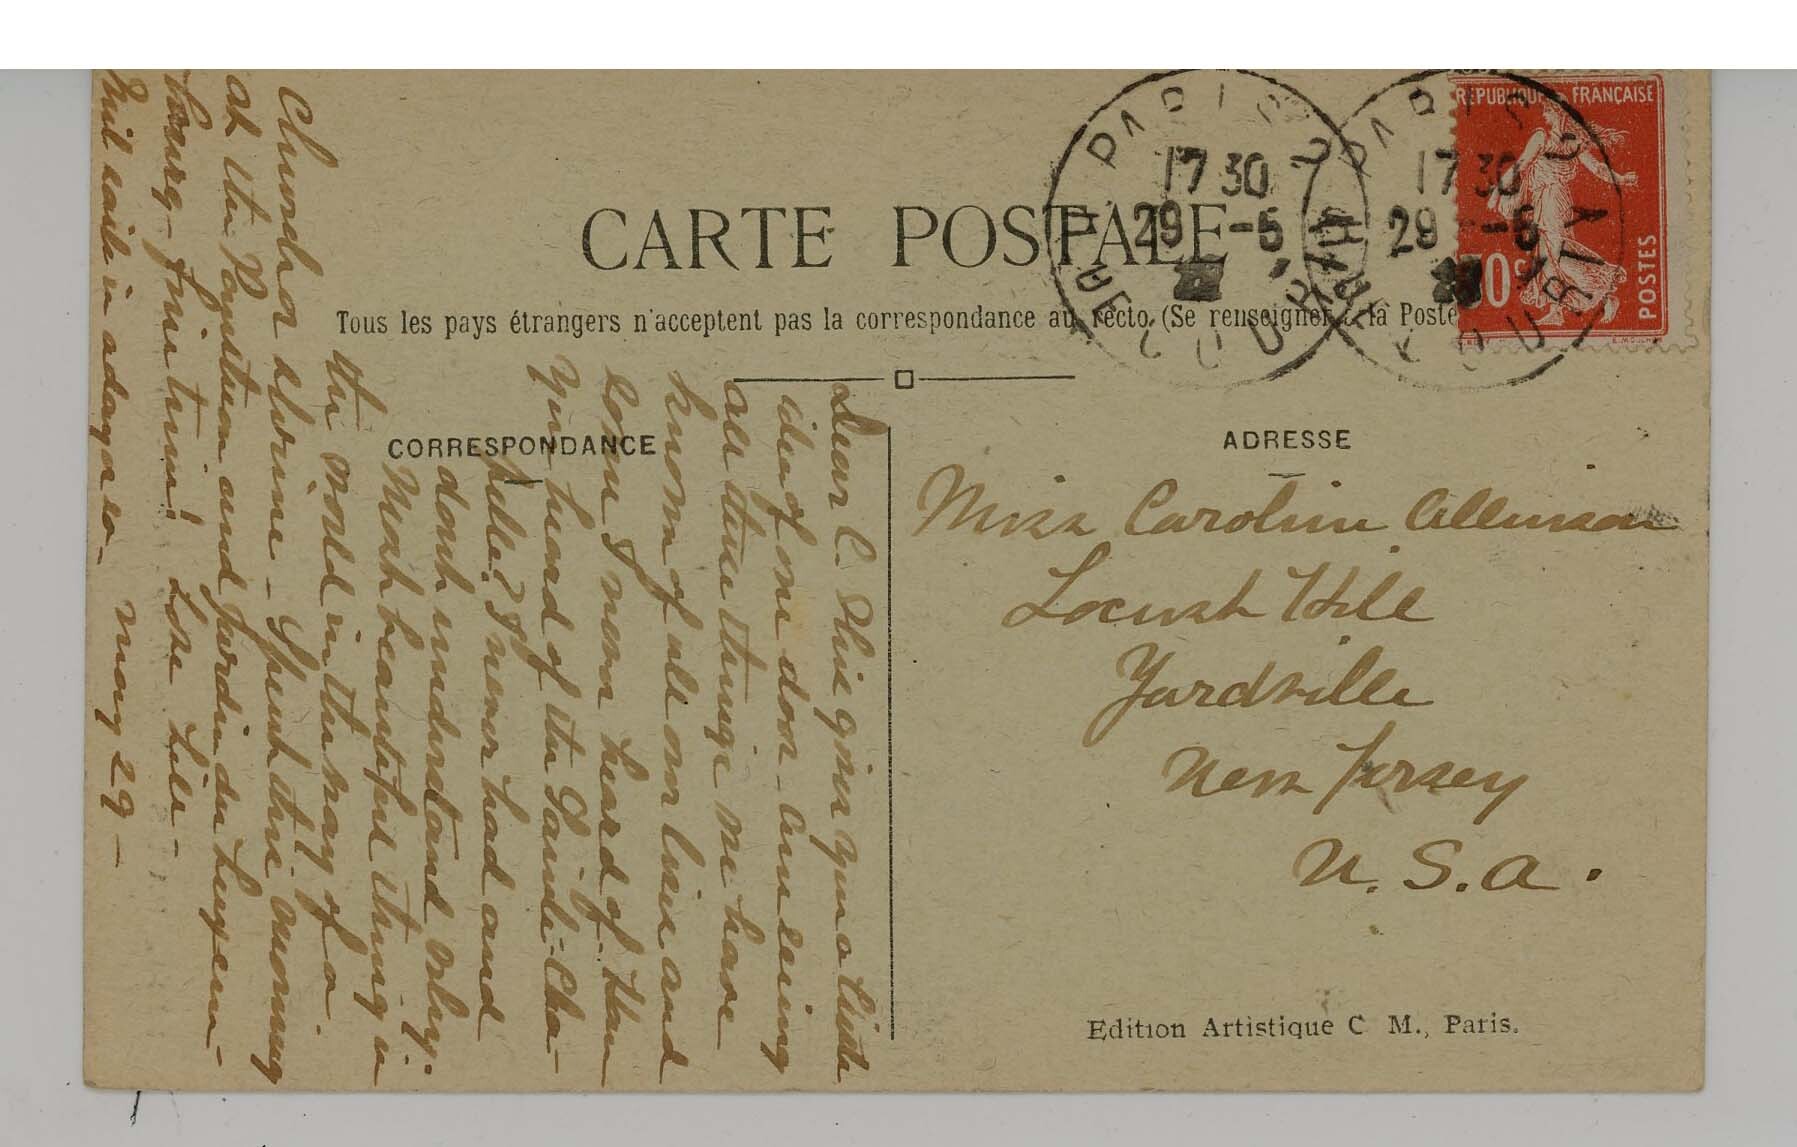 RÉPUBLIQUE FRANÇAISE
POSTES
10c
PARIS
17 30
29 -5
PARIS
17 30
29 -5
CARTE POSTALE
Tous les pays étrangers n'acceptent pas la correspondance au recto (Se renseigner à la Poste
CORRESPONDANCE
ADRESSE
Miss Caroline Allinson
Locust Hill
Yardville
New Jersey
U. S. A.
Edition Artistique C M., Paris.
Dear C. This gives you a little
idea of one door. Am seeing
all these things we have
known of all our lives and
you heard of the Sainte-Cha-
pelle? I never had and
don't understand why.
Most beautiful thing in
the world in the way of a
Spent this morning
at the Pantheon and Jardin du Luxem-
bourg - fine time!
Sail in a day or so -
May 29 -